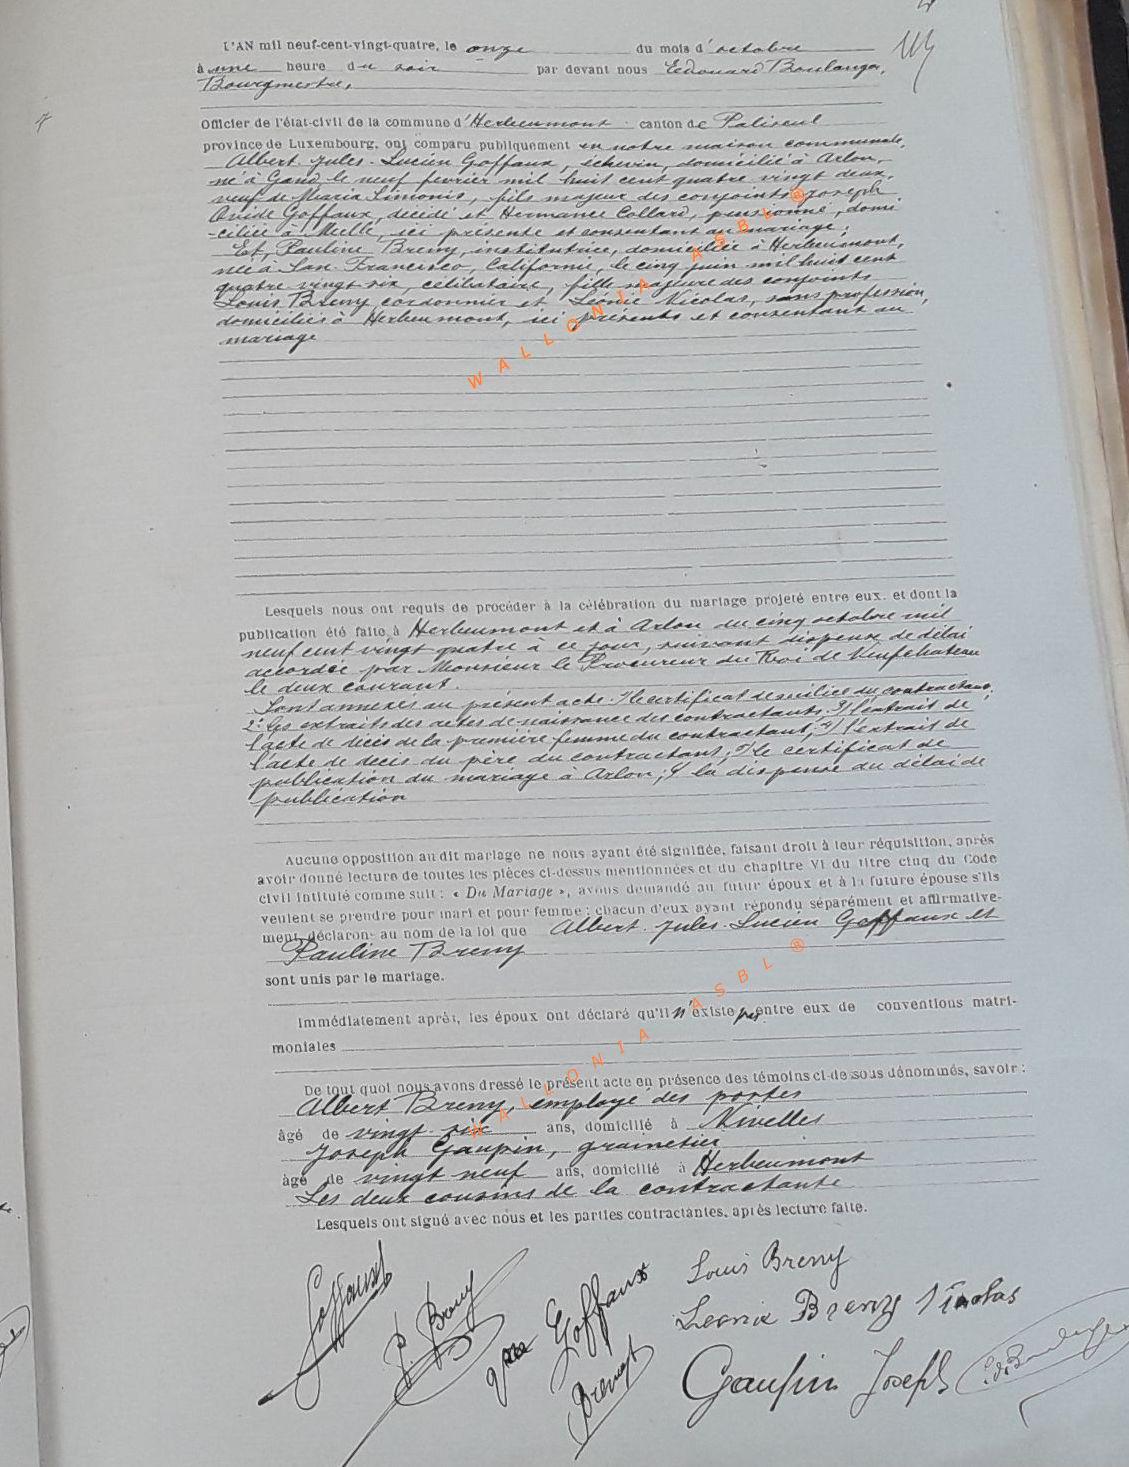 L'AN mil neuf-cent-vingt-quatre, le onze du mois d'octobre
à une heure du soir par devant nous Edouard Boulanger,
Bourgmestre,
Officier de l'état-civil de la commune d'Herbeumont canton de Paliseul
province de Luxembourg, ont comparu publiquement en notre maison communale,
Albert-Jules-Lucien Goffaux, échevin, domicilié à Arlon,
né à Gand le neuf février mil huit cent quatre vingt deux,
veuf de Maria Limonis, fils majeur des conjoints Joseph
Ovide Goffaux, décédé et Hermance Collard, pensionné, domi
-ciliée à Melle, ici présente et consentant au mariage;
Et, Pauline Breny, institutrice, domiciliée à Herbeumont,
née à San-Francisco, Californie, le cinq juin mil huit cent
quatre vingt-six, célibataire, fille majeure des conjoints
Louis Breny cordonnier et Léonie Nicolas, sans profession,
domiciliés à Herbeumont, ici présents et consentant au
mariage
Lesquels nous ont requis de procéder à la célébration du mariage projeté entre eux. et dont la
publication été faite à Herbeumont et à Arlon du cinq octobre mil
neuf cent vingt quatre à ce jour, suivant dispense de délai
accordée par Monsieur le Procureur du Roi de Neufchateau
le deux courant.
Sont annexés au présent acte: 1/ le certificat de milice du contractant,
2° les extraits des actes de naissance des contractants, 3/ l'extrait de
l'acte de décès de la première femme du contractant, 4/ l'extrait de
l'acte de décès du père du contractant; 5/ le certificat de
publication du mariage à Arlon; 6/ la dispense du délai de
publication
Aucune opposition au dit mariage ne nous ayant été signifiée, faisant droit à leur réquisition, après
avoir donné lecture de toutes les pièces ci-dessus mentionnées et du chapitre VI du titre cinq du Code
civil intitulé comme suit : « Du Mariage », avons demandé au futur époux et à la future épouse s'ils
veulent se prendre pour mari et pour femme ; chacun d'eux ayant répondu séparément et affirmative-
ment, déclarons au nom de la loi que Albert-Jules-Lucien Goffaux et
Pauline Breny
sont unis par le mariage.
Immédiatement après, les époux ont déclaré qu'il n'existe pas entre eux de conventions matri-
moniales
De tout quoi nous avons dressé le présent acte en présence des témoins ci-dessous dénommés, savoir :
Albert Breny, employé des postes
âgé de vingt-six ans, domicilié à Nivelles
Joseph Gaupin, grainetier
âgé de vingt neuf ans, domicilié à Herbeumont
Les deux cousins de la contractante
Lesquels ont signé avec nous et les parties contractantes, après lecture faite.
Goffaux
P. Breny
Goffaux
Louis Breny
Leonie Breny Nicolas
Gaupin Joseph
Ed. Boulanger
WALLONIA ASBL ®
WALLONIA ASBL ®